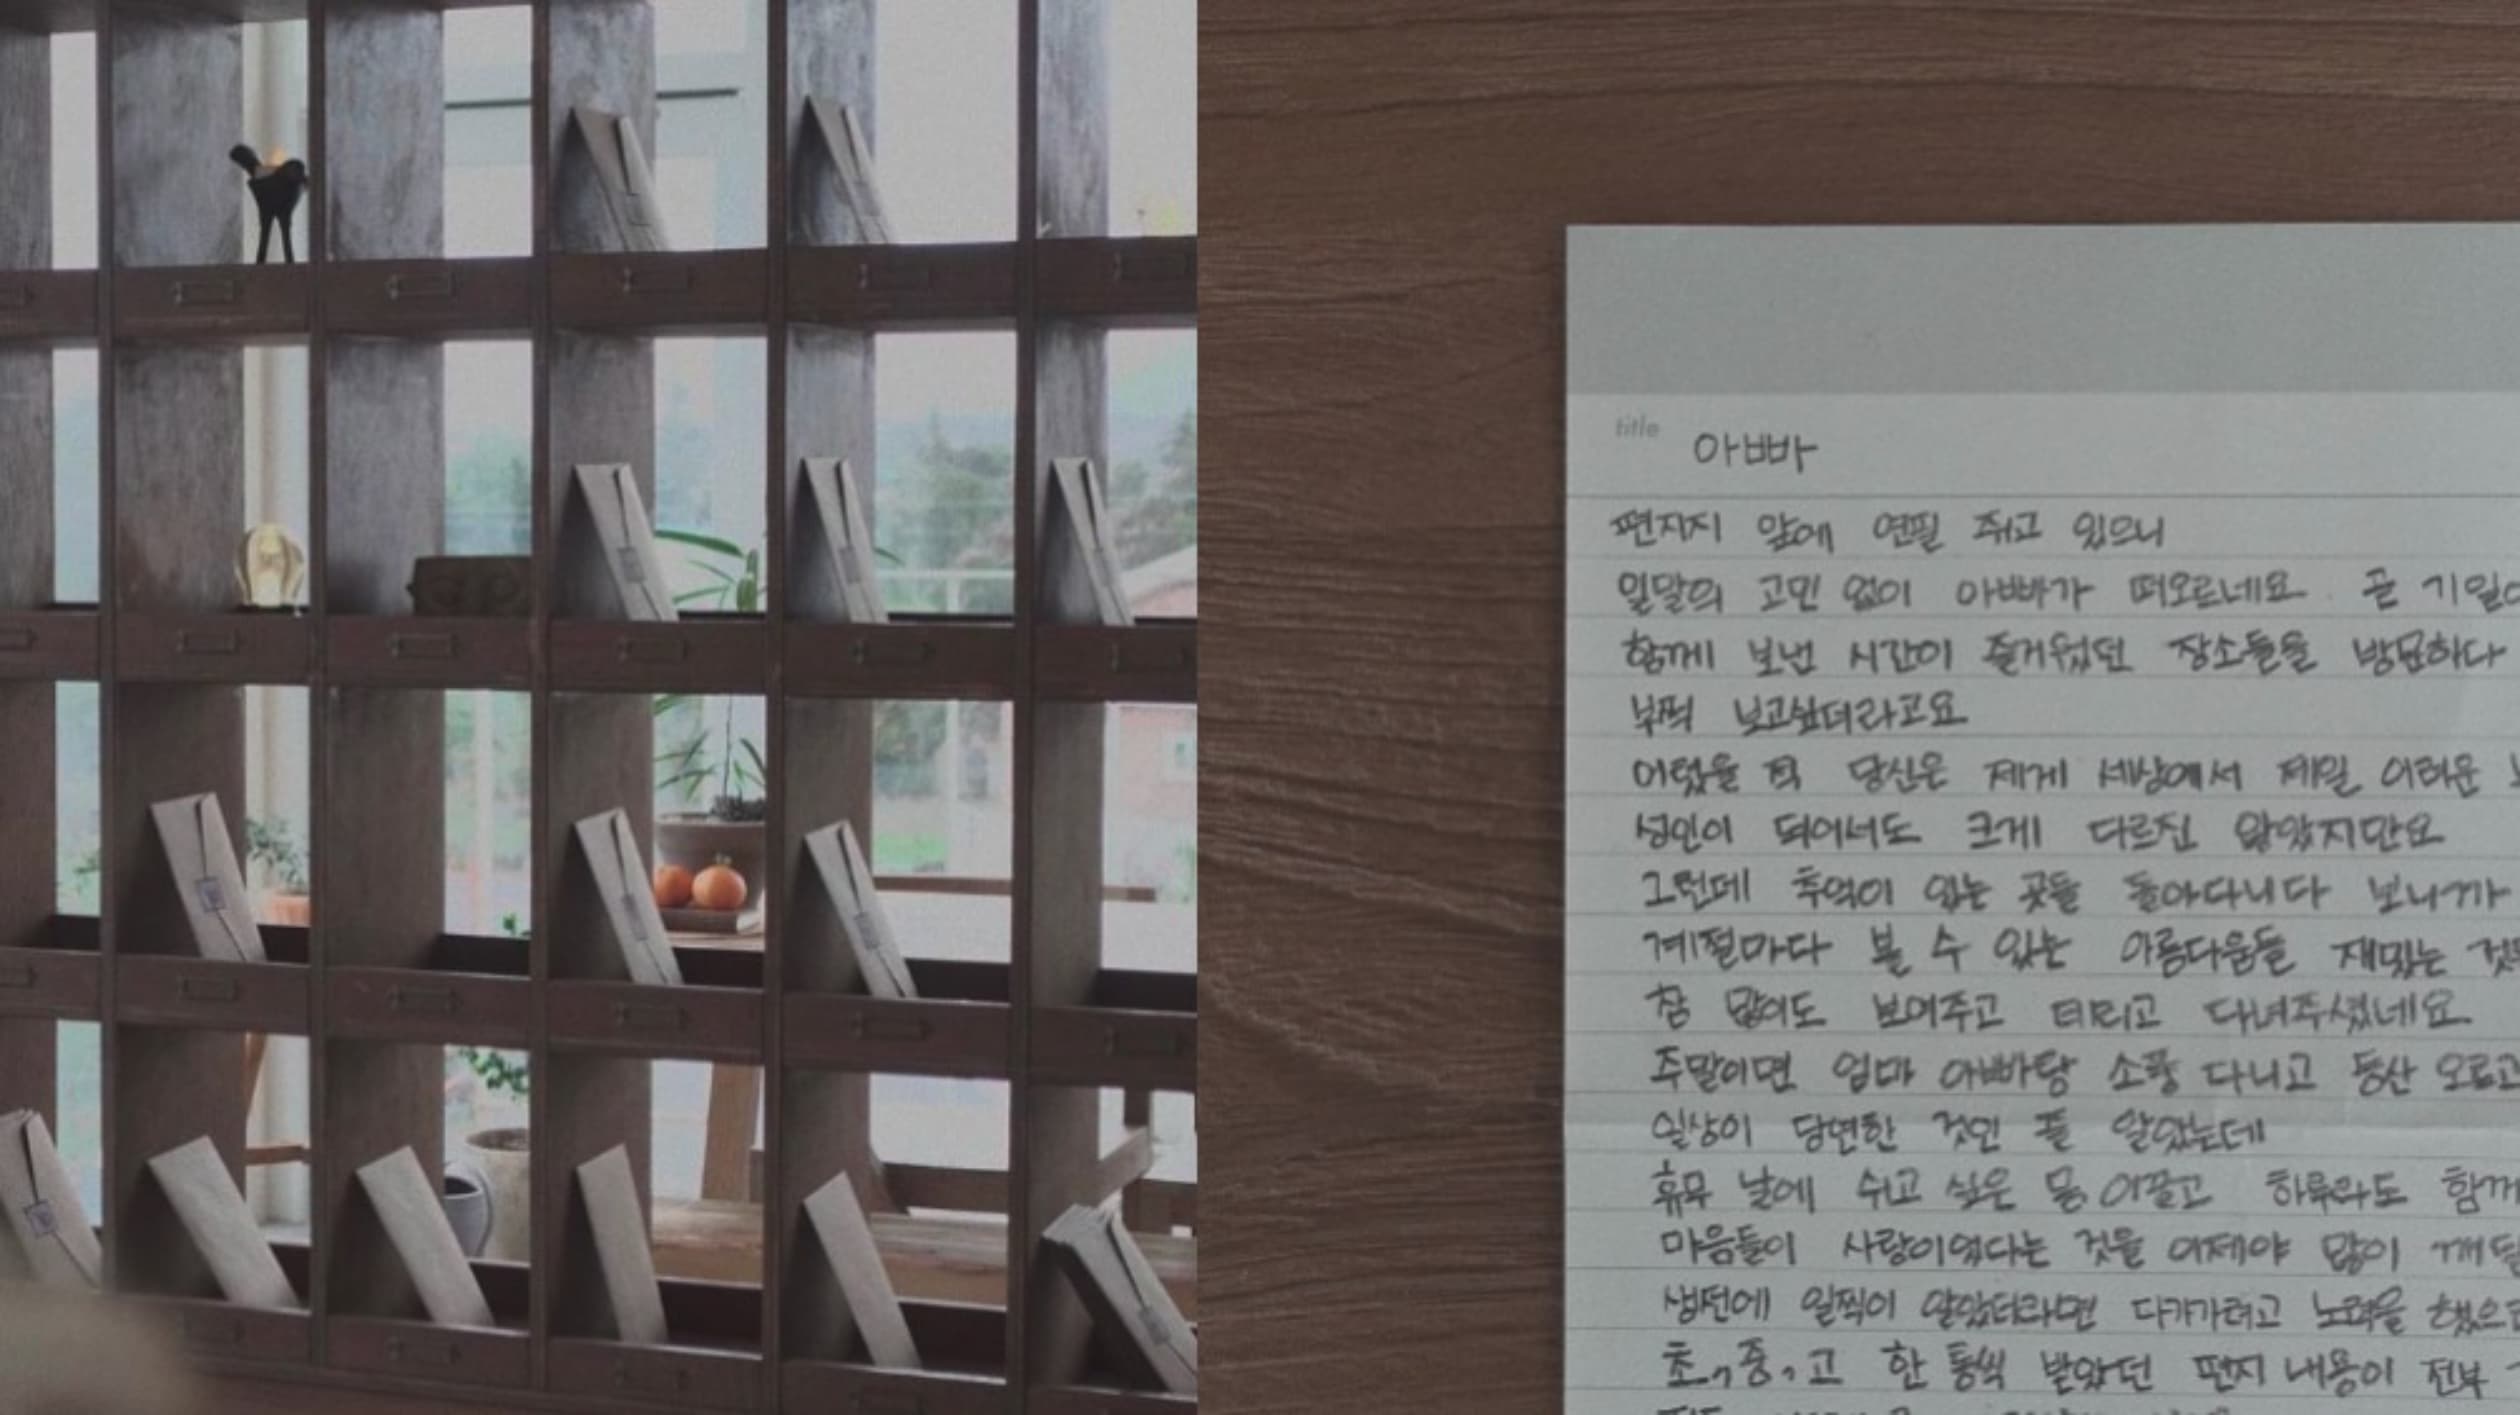 title 아빠
편지지 앞에 연필 쥐고 있으니
일말의 고민 없이 아빠가 떠오르네요. 곧 기일
함께 보낸 시간이 즐거웠던 장소들을 방문하다
부쩍 보고싶더라고요
어렸을 적 당신은 제게 세상에서 제일 어려운
성인이 되어서도 크게 다르진 않았지만요
그런데 추억이 있는 곳들 돌아다니다 보니까
계절마다 볼 수 있는 아름다움들 재밌는
참 많이도 보여주고 데리고 다녀주셨네요
주말이면 엄마 아빠랑 소풍 다니고 등산 오르고
일상이 당연한 것인 줄 알았는데
휴무 날에 쉬고 싶은 몸 이끌고 하루라도 함께
마음들이 사랑이었다는 것을 이제야 많이
생전에 일찍이 알았더라면 다가가려고 노력을
초,중,고 한 통씩 받았던 편지 내용이 전부